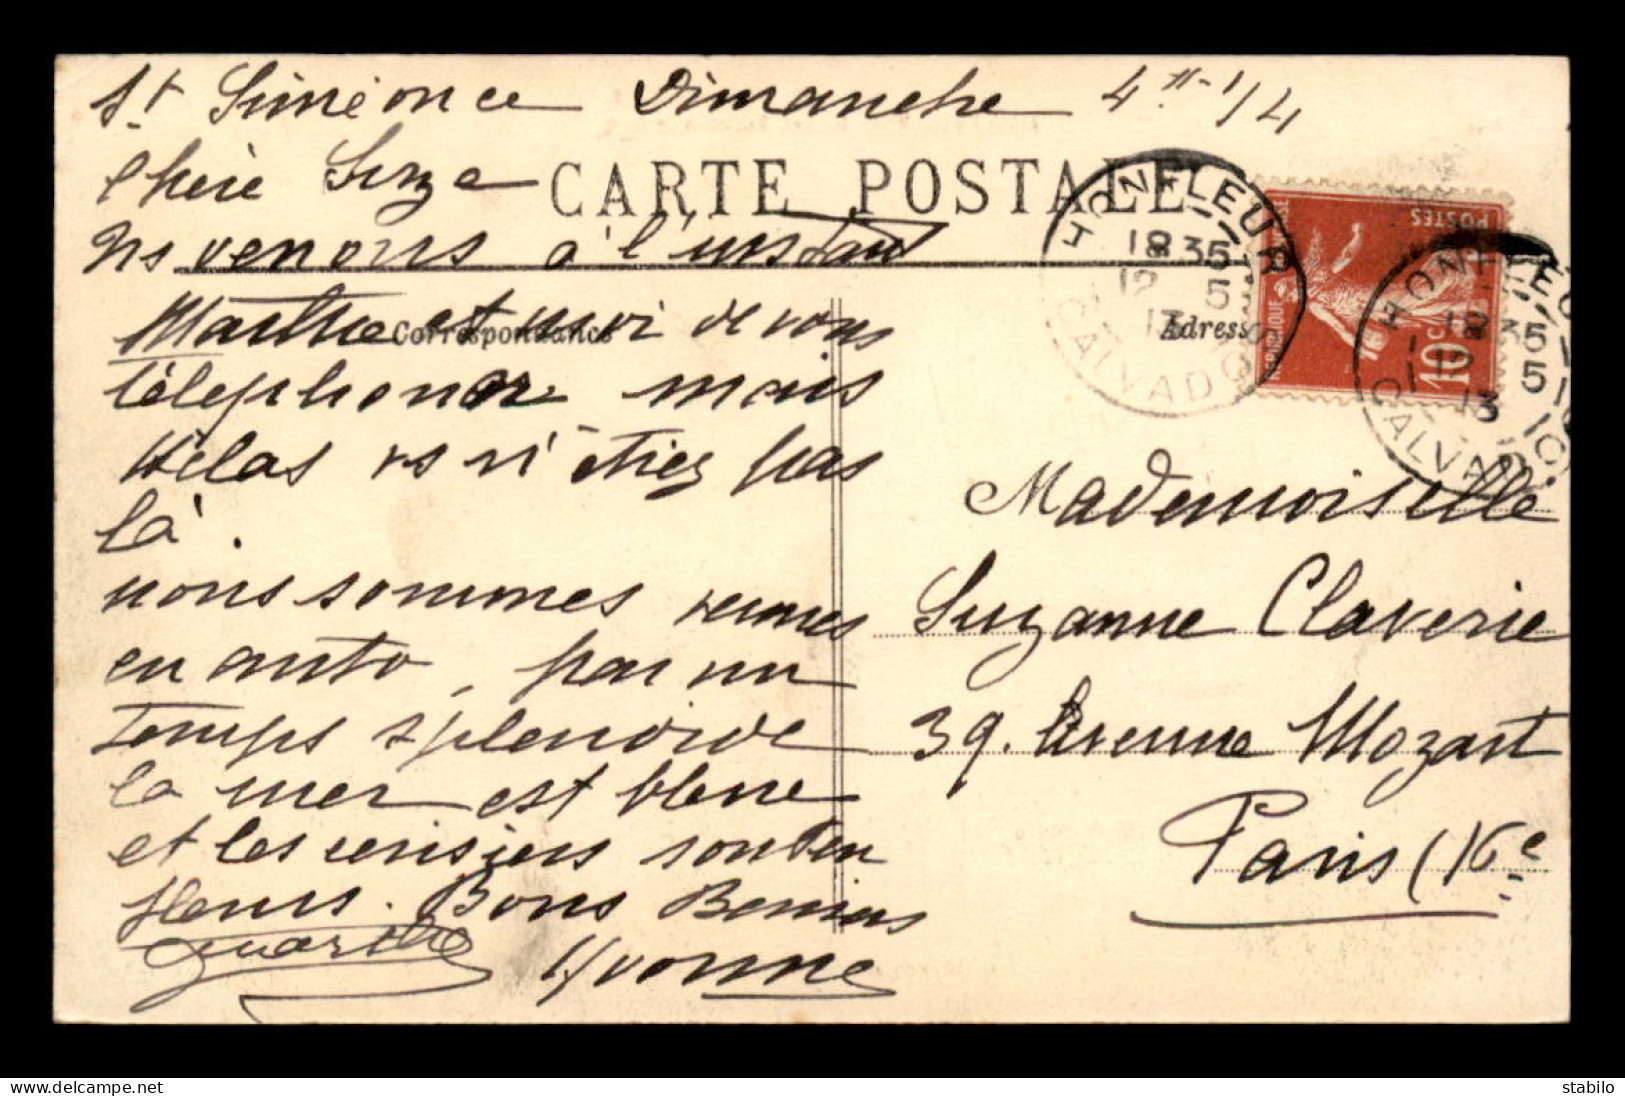 St Siméonce Dimanche 4 h 1/4
Chère Suze
CARTE POSTALE
Ns venons à l'instant
Marthe et moi de vous
Correspondance
Adresse
téléphoner mais
Hélas vs n'étiez pas
là.
nous sommes venues
en auto, par un
temps splendide
la mer est bleue
et les cerisiers sont en
fleurs. Bons Baisers
Marthe Yvonne
HONFLEUR
18 35
12 5
13
CALVADOS
POSTES
10 C
HONFLEUR
18 35
12 5
13
CALVADOS
Mademoiselle
Suzanne Claverie
39. Avenue Mozart
Paris (XVIe
stabilo